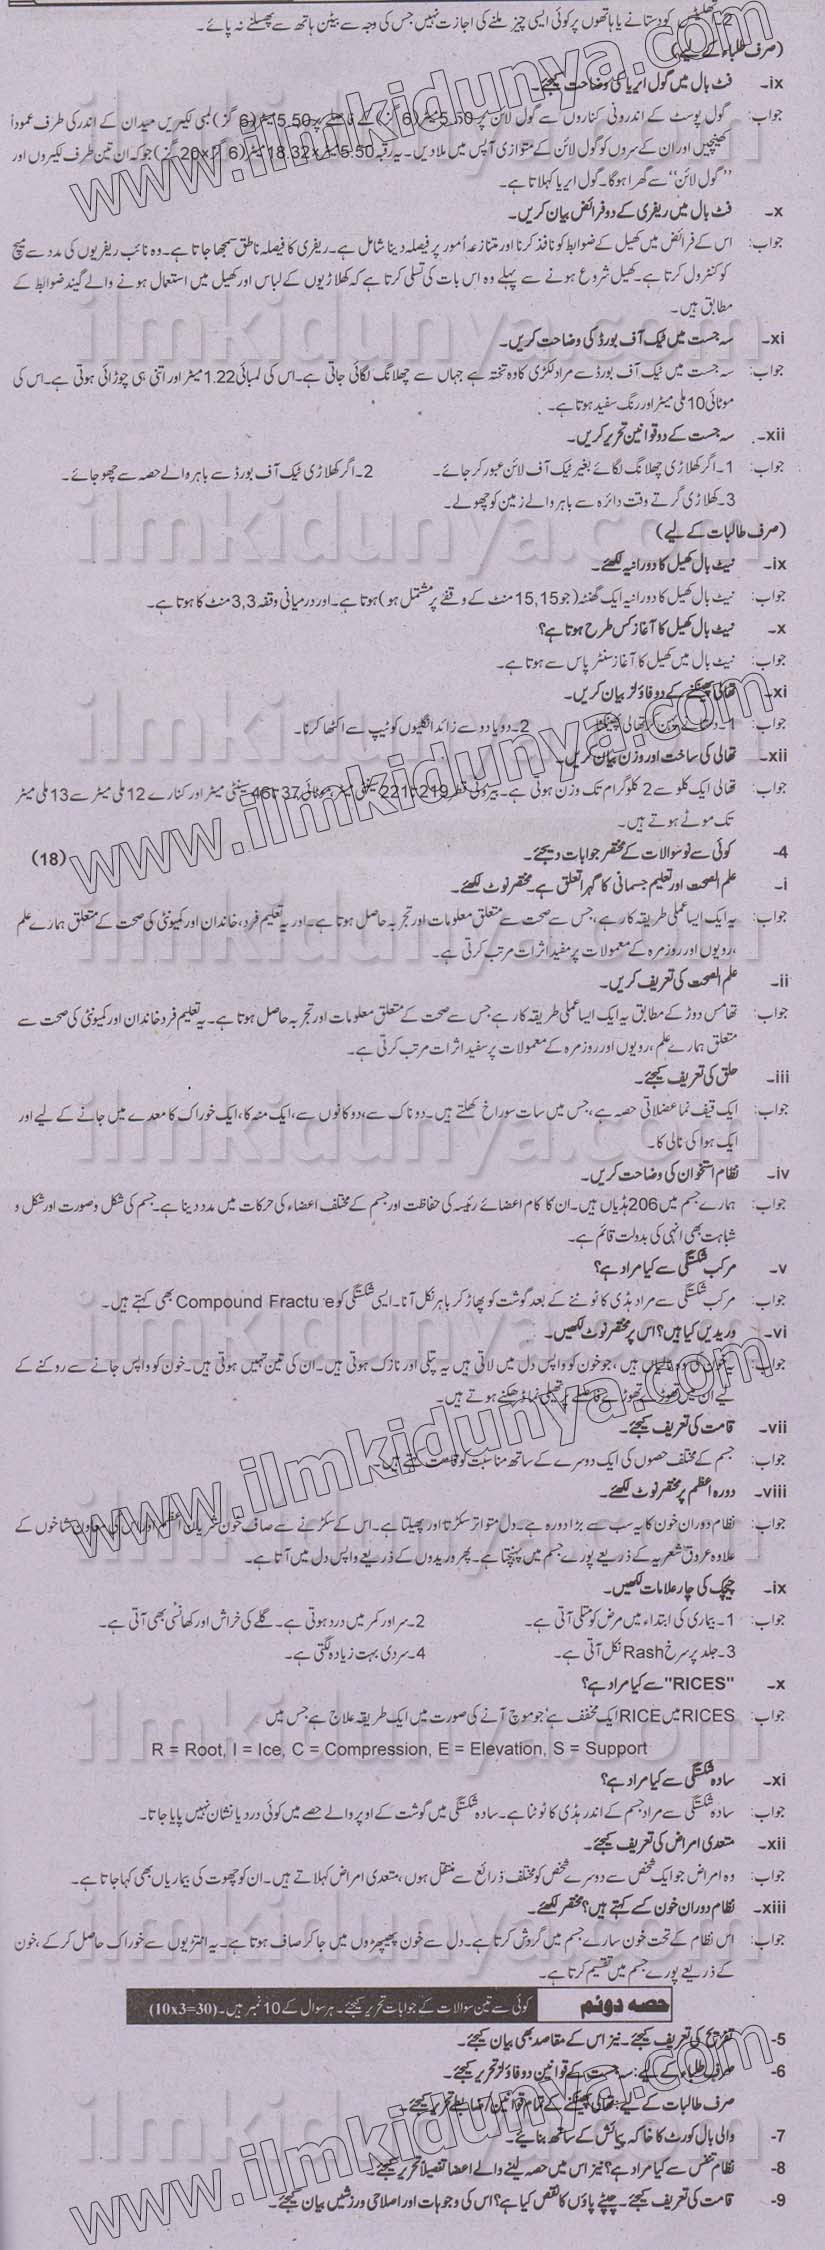 2۔ اتھلیٹس کو دستانے یا ہاتھوں پر کوئی ایسی چیز ملنے کی اجازت نہیں جس کی وجہ سے بیٹن ہاتھ سے پھسلنے نہ پائے۔
(صرف طلباء کے لیے)
ix۔ فٹ بال میں گول ایریا کی وضاحت کیجئے۔
جواب: گول پوسٹ کے اندرونی کناروں سے گول لائن پر 5.50 میٹر (6 گز) کے فاصلے پر 5.50 میٹر (6 گز) لمبی لکیریں میدان کے اندر کی طرف عموداً
کھینچیں اور ان کے سروں کو گول لائن کے متوازی آپس میں ملا دیں۔ یہ رقبہ 5.50 میٹر×18.32 میٹر (6 گز×20 گز) جو کہ ان تین طرف لکیروں اور
"گول لائن" سے گھرا ہوگا۔ گول ایریا کہلاتا ہے۔
x۔ فٹ بال میں ریفری کے دو فرائض بیان کریں۔
جواب: اس کے فرائض میں کھیل کے ضوابط کو نافذ کرنا اور متنازعہ اُمور پر فیصلہ دینا شامل ہے۔ ریفری کا فیصلہ ناطق سمجھا جاتا ہے۔ وہ نائب ریفریوں کی مدد سے میچ
کو کنٹرول کرتا ہے۔ کھیل شروع ہونے سے پہلے وہ اس بات کی تسلی کرتا ہے کہ کھلاڑیوں کے لباس اور کھیل میں استعمال ہونے والے گیند ضوابط کے
مطابق ہیں۔
xi۔ سہ جست میں ٹیک آف بورڈ کی وضاحت کریں۔
جواب: سہ جست میں ٹیک آف بورڈ سے مراد لکڑی کا وہ تختہ ہے جہاں سے چھلانگ لگائی جاتی ہے۔ اس کی لمبائی 1.22 میٹر اور اتنی ہی چوڑائی ہوتی ہے۔ اس کی
موٹائی 10 ملی میٹر اور رنگ سفید ہوتا ہے۔
xii۔ سہ جست کے دو قوانین تحریر کریں۔
جواب: 1۔ اگر کھلاڑی چھلانگ لگائے بغیر ٹیک آف لائن عبور کر جائے۔ 2۔ اگر کھلاڑی ٹیک آف بورڈ سے باہر والے حصہ سے چھو جائے۔
3۔ کھلاڑی گرتے وقت دائرہ سے باہر والے زمین کو چھولے۔
(صرف طالبات کے لیے)
ix۔ نیٹ بال کھیل کا دورانیہ لکھئے۔
جواب: نیٹ بال کھیل کا دورانیہ ایک گھنٹہ (جو 15,15 منٹ کے وقفے پر مشتمل ہو) ہوتا ہے۔ اور درمیانی وقفہ 3,3 منٹ کا ہوتا ہے۔
x۔ نیٹ بال کھیل کا آغاز کس طرح ہوتا ہے؟
جواب: نیٹ بال میں کھیل کا آغاز سنٹر پاس سے ہوتا ہے۔
xi۔ تھالی پھینکنے کے دو فاؤلز بیان کریں۔
جواب: 1۔ دستانے پہن کر تھالی پھینکنا 2۔ دو یا دو سے زائد انگلیوں کو ٹیپ سے اکٹھا کرنا۔
xii۔ تھالی کی ساخت اور وزن بیان کریں۔
جواب: تھالی ایک کلو سے 2 کلوگرام تک وزن ہوتی ہے۔ بیرونی قطر 219 تا 221 سینٹی میٹر، موٹائی 37 تا 46 سینٹی میٹر اور کنارے 12 ملی میٹر سے 13 ملی میٹر
تک موٹے ہوتے ہیں۔
4- کوئی سے نو سوالات کے مختصر جوابات دیجئے۔ (18)
i۔ علم الصحت اور تعلیم جسمانی کا گہرا تعلق ہے۔ مختصر نوٹ لکھئے۔
جواب: یہ ایک ایسا عملی طریقہ کار ہے، جس سے صحت سے متعلق معلومات اور تجربہ حاصل ہوتا ہے۔ اور یہ تعلیم فرد، خاندان اور کمیونٹی کی صحت کے متعلق ہمارے علم
،رویوں اور روزمرہ کے معمولات پر مفید اثرات مرتب کرتی ہے۔
ii۔ علم الصحت کی تعریف کریں۔
جواب: تھامس ووڈ کے مطابق یہ ایک ایسا عملی طریقہ کار ہے جس سے صحت کے متعلق معلومات اور تجربہ حاصل ہوتا ہے۔ یہ تعلیم فرد خاندان اور کمیونٹی کی صحت سے
متعلق ہمارے علم، رویوں اور روزمرہ کے معمولات پر سفید اثرات مرتب کرتی ہے۔
iii۔ حلق کی تعریف کیجئے۔
جواب: ایک قیف نما عضلاتی حصہ ہے، جس میں سات سوراخ کھلتے ہیں۔ دو ناک سے، دو کانوں سے، ایک منہ کا، ایک خوراک کا معدے میں جانے کے لیے اور
ایک ہوا کی نالی کا۔
iv۔ نظام استخوان کی وضاحت کریں۔
جواب: ہمارے جسم میں 206 ہڈیاں ہیں۔ ان کا کام اعضائے رئیسہ کی حفاظت اور جسم کے مختلف اعضاء کی حرکات میں مدد دینا ہے۔ جسم کی شکل و صورت اور شکل و
شباہت بھی انہی کی بدولت قائم ہے۔
v۔ مرکب شکستگی سے کیا مراد ہے؟
جواب: مرکب شکستگی سے مراد ہڈی کا ٹوٹنے کے بعد گوشت کو پھاڑ کر باہر نکل آنا۔ ایسی شکستگی کو Compound Fractu e بھی کہتے ہیں۔
vi۔ وریدیں کیا ہیں؟ اس پر مختصر نوٹ لکھیں۔
جواب: یہ خون کی وہ نالیاں ہیں، جو خون کو واپس دل میں لاتی ہیں یہ پتلی اور نازک ہوتی ہیں۔ ان کی تین تہیں ہوتی ہیں۔ خون کو واپس جانے سے روکنے کے
لیے ان میں تھوڑے تھوڑے فاصلے پر تھیلی نما ڈھکنے ہوتے ہیں۔
vii۔ قامت کی تعریف کیجئے۔
جواب: جسم کے مختلف حصوں کی ایک دوسرے کے ساتھ مناسبت کو قامت کہتے ہیں۔
viii۔ دورہ اعظم پر مختصر نوٹ لکھئے۔
جواب: نظام دوران خون کا یہ سب سے بڑا دورہ ہے۔ دل متواتر سکڑتا اور پھیلتا ہے۔ اس کے سکڑنے سے صاف خون شریان اعظم اور اس کی معاون شاخوں کے
علاوہ عروق شعریہ کے ذریعے پورے جسم میں پہنچتا ہے۔ پھر وریدوں کے ذریعے واپس دل میں آتا ہے۔
ix۔ چیچک کی چار علامات لکھیں۔
جواب: 1۔ بیماری کی ابتداء میں مرض کو متلی آتی ہے۔ 2۔ سر اور کمر میں درد ہوتی ہے۔ گلے کی خراش اور کھانسی بھی آتی ہے۔
3۔ جلد پر سرخ Rash نکل آتی ہے۔ 4۔ سردی بہت زیادہ لگتی ہے۔
x۔ "RICES" سے کیا مراد ہے؟
جواب: RICES میں RICE ایک مخفف ہے' جو موچ آنے کی صورت میں ایک طریقہ علاج ہے جس میں
R = Root, I = Ice, C = Compression, E = Elevation, S = Support
xi۔ سادہ شکستگی سے کیا مراد ہے؟
جواب: سادہ شکستگی سے مراد جسم کے اندر ہڈی کا ٹوٹنا ہے۔ سادہ شکستگی میں گوشت کے اوپر والے حصے میں کوئی درد یا نشان نہیں پایا جاتا۔
xii۔ متعدی امراض کی تعریف کیجئے۔
جواب: وہ امراض جو ایک شخص سے دوسرے شخص کو مختلف ذرائع سے منتقل ہوں، متعدی امراض کہلاتے ہیں۔ ان کو چھوت کی بیماریاں بھی کہا جاتا ہے۔
xiii۔ نظام دوران خون کسے کہتے ہیں؟ مختصر لکھئے۔
جواب: اس نظام کے تحت خون سارے جسم میں گردش کرتا ہے۔ دل سے خون پھیپھڑوں میں جا کر صاف ہوتا ہے۔ یہ انتڑیوں سے خوراک حاصل کر کے، خون
کے ذریعے پورے جسم میں تقسیم کرتا ہے۔
حصہ دوئم کوئی سے تین سوالات کے جوابات تحریر کیجئے۔ ہر سوال کے 10 نمبر ہیں۔ (10x3=30)
5- تفریح کی تعریف کیجئے۔ نیز اس کے مقاصد بھی بیان کیجئے۔
6- صرف طلباء کے لیے: سہ جست کے قوانین و فاؤلز تحریر کیجئے۔
صرف طالبات کے لیے: تھالی پھینکنے کے تمام قوانین/ضابطے تحریر کیجئے۔
7- والی بال کورٹ کا خاکہ پیمائش کے ساتھ بنائیے۔
8- نظام تنفس سے کیا مراد ہے؟ نیز اس میں حصہ لینے والے اعضا تفصیلاً تحریر کیجئے۔
9- قامت کی تعریف کیجئے۔ چپٹے پاؤں کا نقص کیا ہے؟ اس کی وجوہات اور اصلاحی ورزشیں بیان کیجئے۔